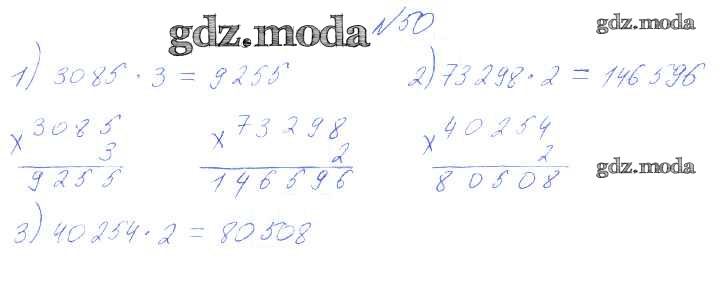 gdz.moda №50 gdz.moda
1) 3085 · 3 = 9255 2) 73298 · 2 = 146596
× 3085 × 73298 × 40254
3 2 2
9255 146596 80508 gdz.moda
3) 40254 · 2 = 80508